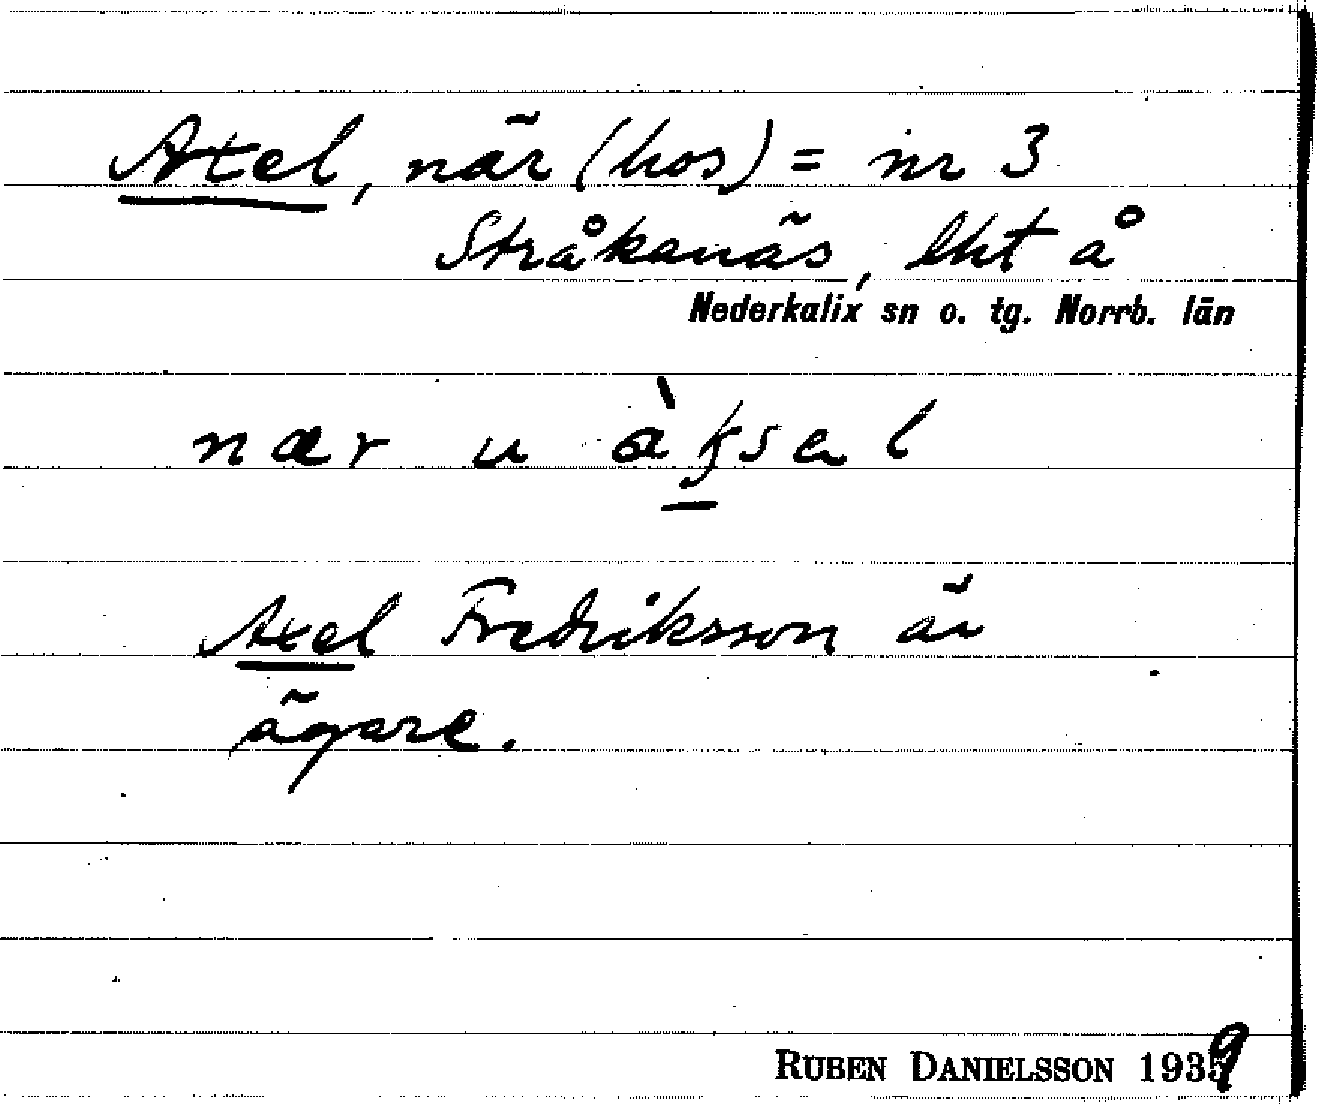 Axel, när (hos) = nr 3
Stråkanäs, lht å
Nederkalix sn o. tg. Norrb. län
nær u àksal
Axel Fredriksson är
ägare.
RUBEN DANIELSSON 1939